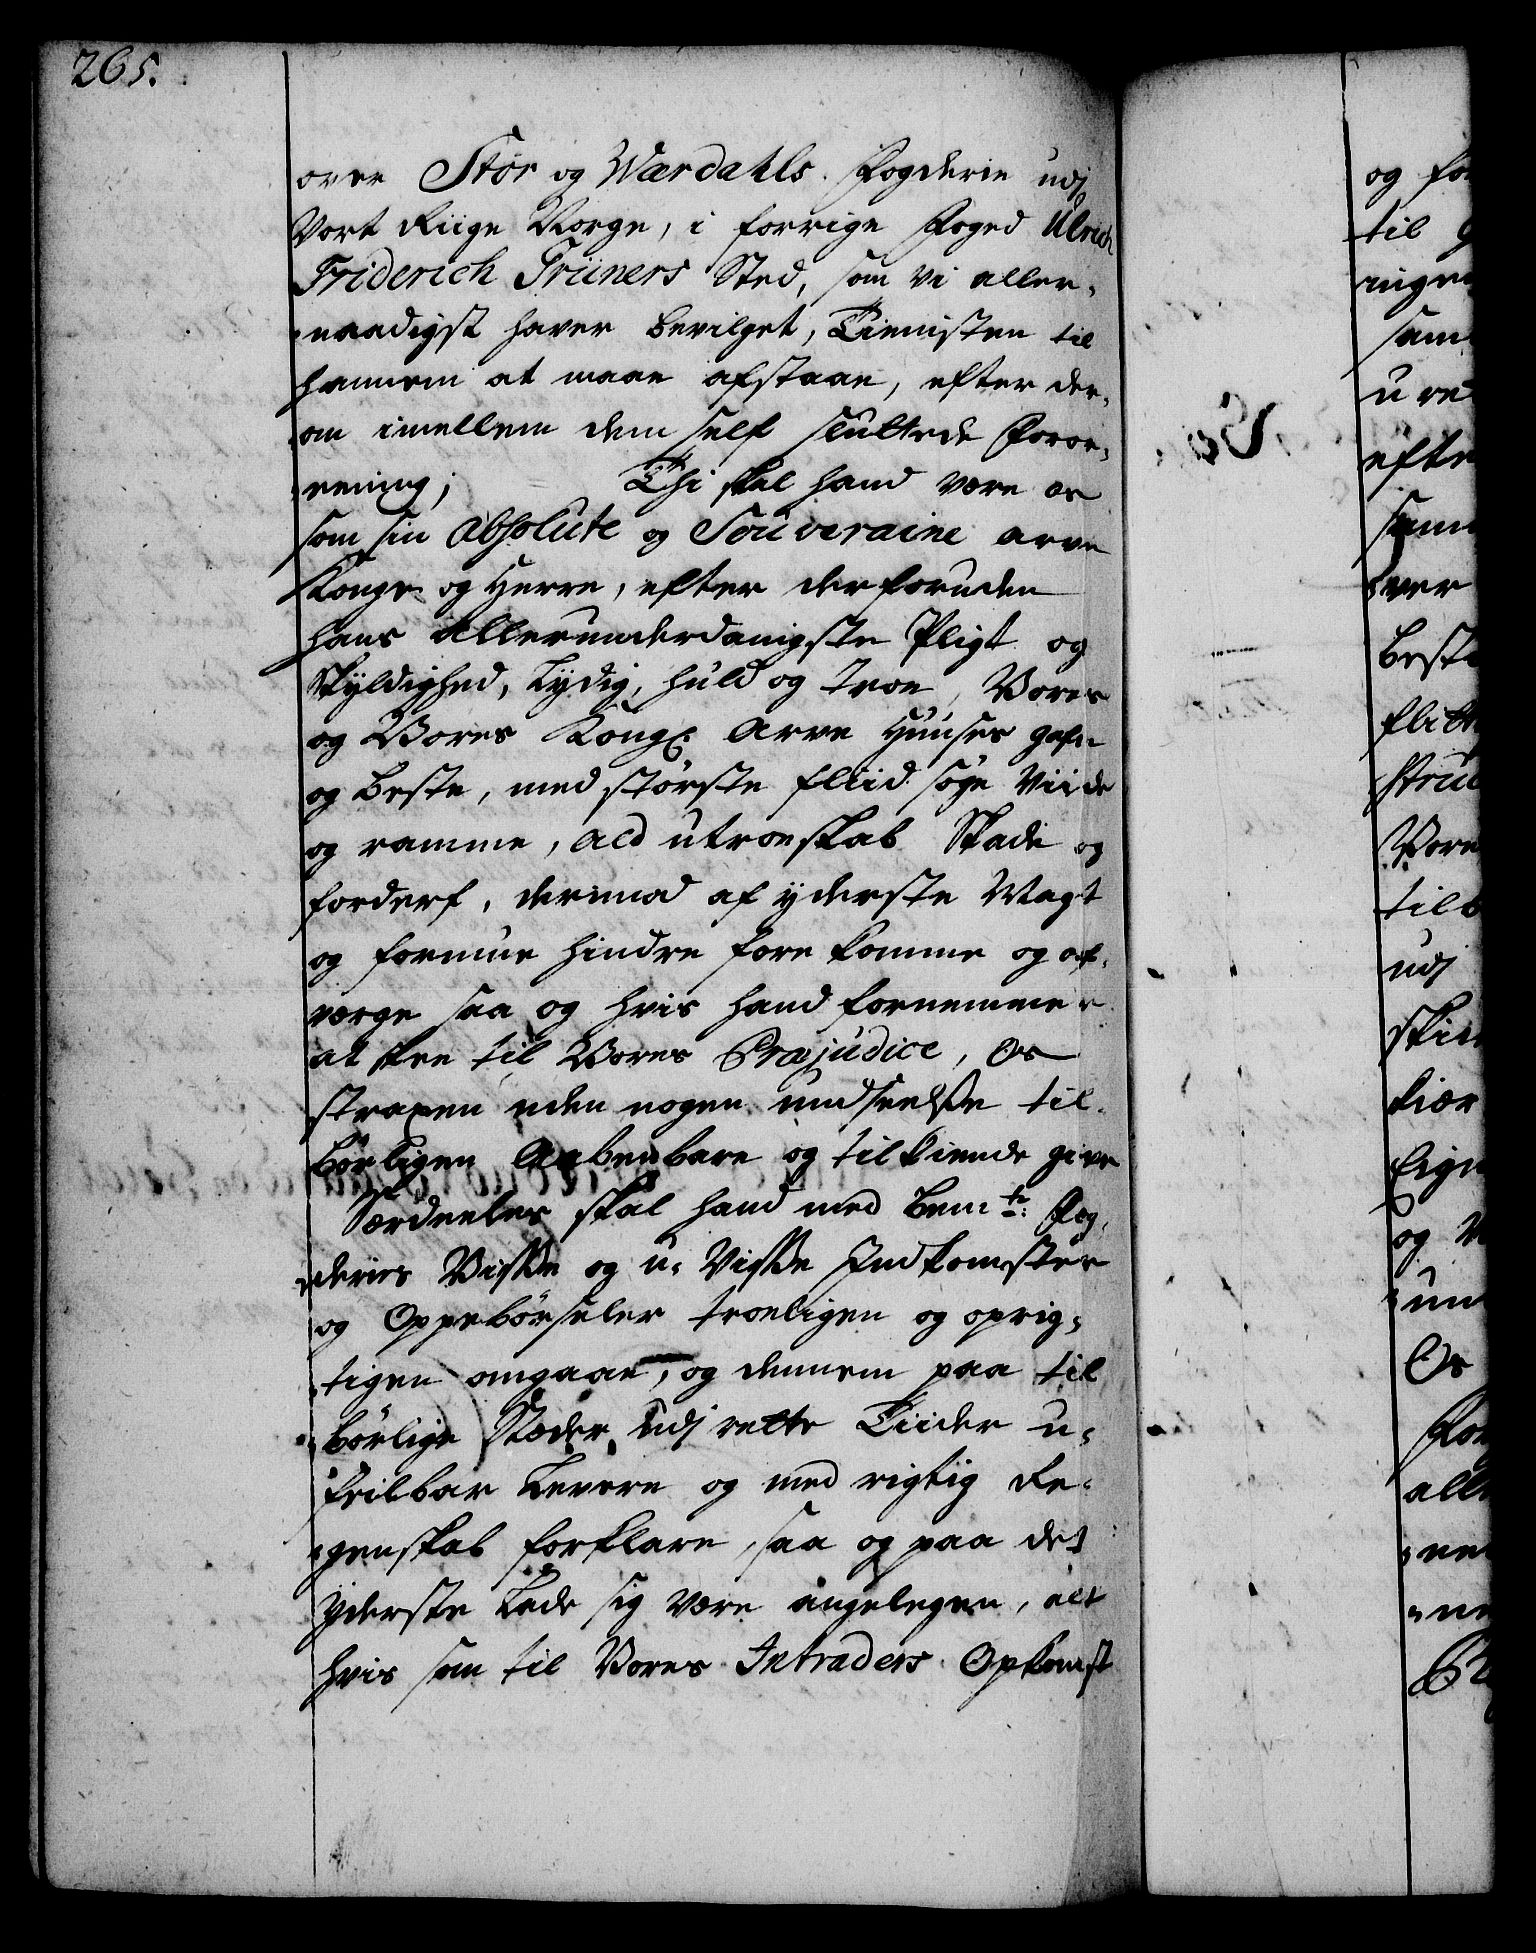 265.
over Stør og Værdahls Fogderie udj
Vort Riige Norge, i forrige Foged Ulrich
Friderich Trüners Sted, som vi aller-
-naadigst haver bevilget, Tienisten til
hannem at maae afstaae, efter der-
-om imellem dem self sluttede Foree-
-ening; Thi skal hand være os
som sin Absolute og Souveraine arve
Konge og Herre, efter derforuden
hans Allerunderdanigste Pligt og
Skyldighed, Lydig, huld og troe, Vores
og Vores Kongl. Arve Huuses gafn
og beste, med største fliid søge Viide
og ramme, ald utroeskab Skade og
forderf, derimod af yderste Magt
og formue hindre fore komme og af-
værge saa og hvis hand fornemmer
at skee til Vores Præjudice, Os
straxen uden nogen undseelse til-
børligen Aabenbare og tilkiende give
Særdeeles skal hand med bemte: Fog-
-deries Visse og u-Visse Indkomster
og Oppebørseler troeligen og oprig-
-tigen omgaae, og dennem paa til
-børlige Stæder udj rette Tiider u-
feilbar Levere og med rigtig Re-
-genskab forklare, saa og paa det
yderste Lade sig være angelegen, alt
hvis som til Vores Intraders Opkomst
og fo
til
ringe
sam
u re
efte
samm
-ver
beste
flitt
Stru
Vore
tilb
udj
skik
kiær
Eign
og V
-un
Os
For
alle
-ne
-ne